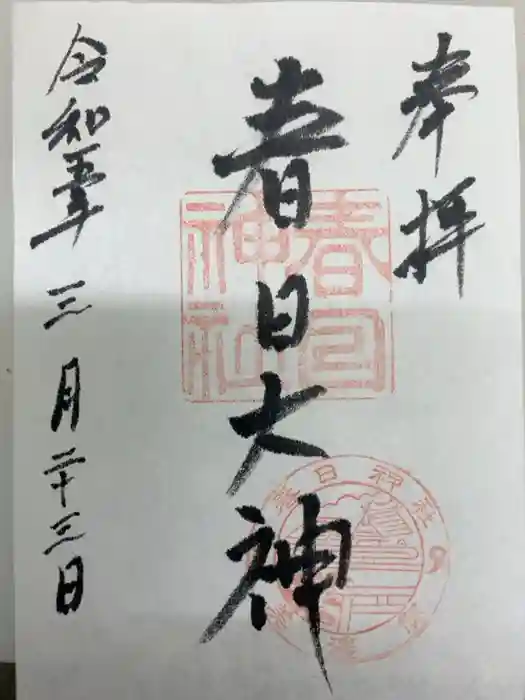 奉拝
春日大神
令和五年三月二十三日
春日神社
春日神社